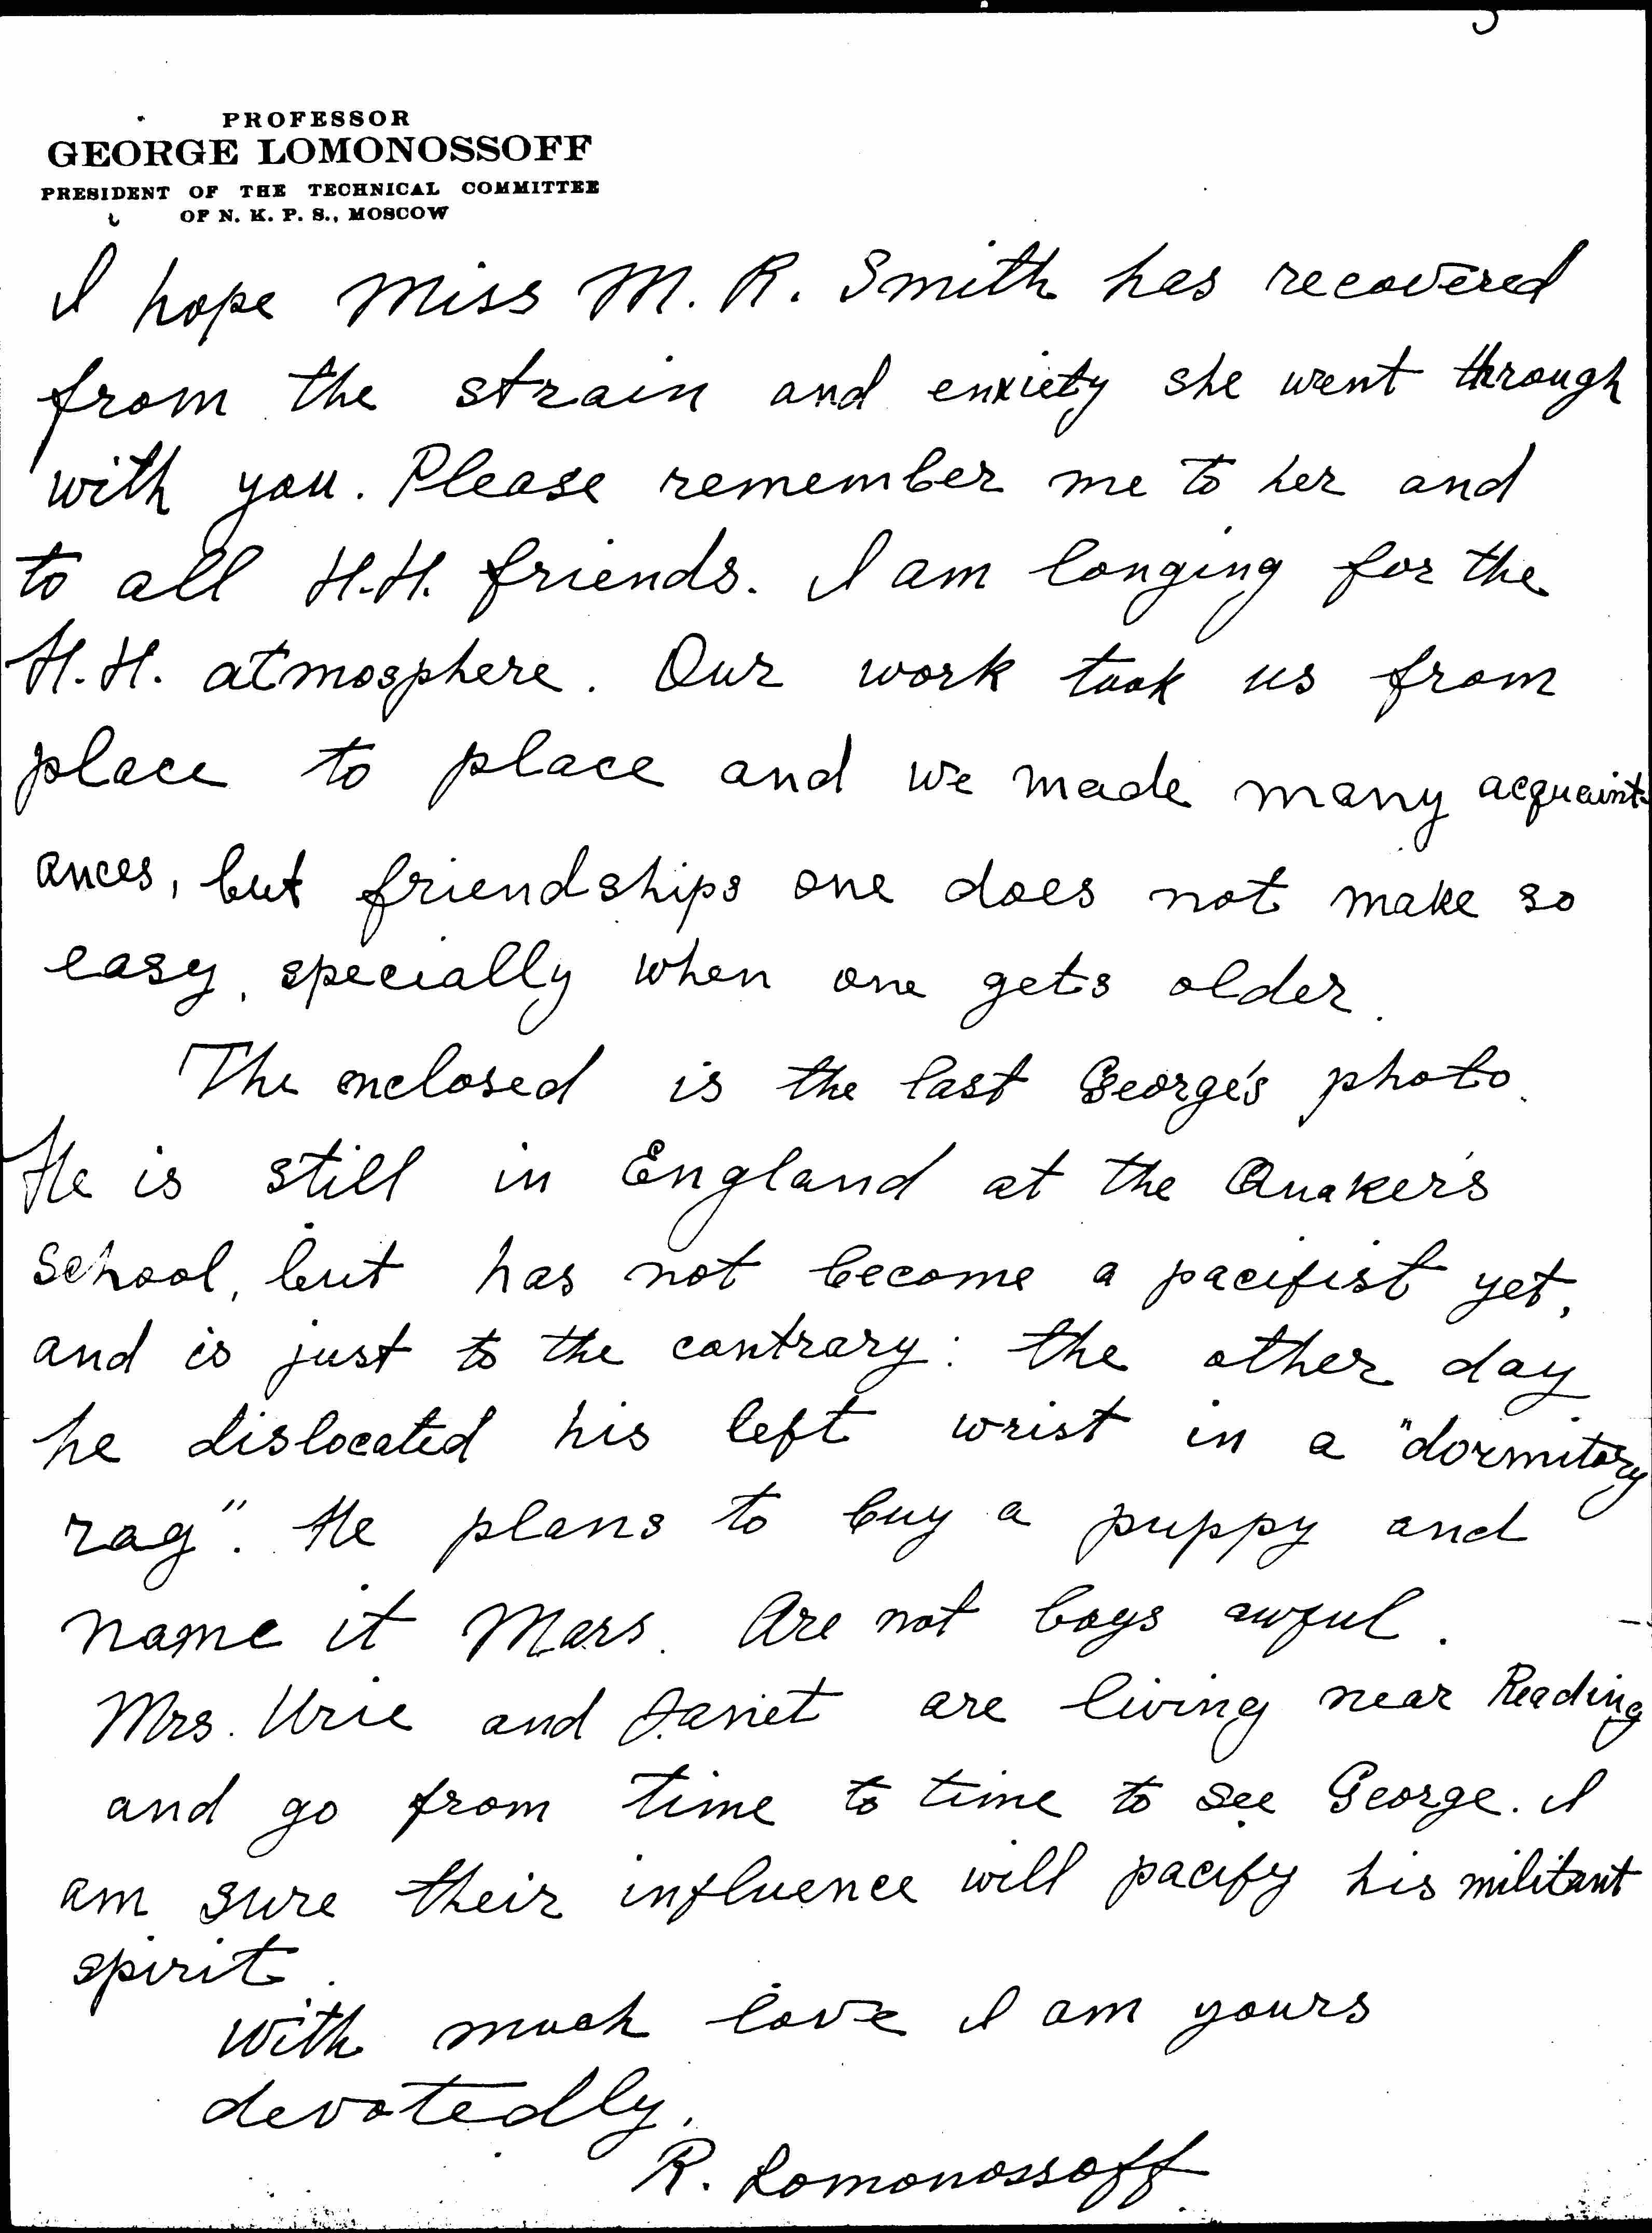 PROFESSOR
GEORGE LOMONOSSOFF
PRESIDENT OF THE TECHNICAL COMMITTEE
OF N. K. P. S., MOSCOW
I hope Miss M. R. Smith has recovered
from the strain and enxiety she went through
with you. Please remember me to her and
to all H.H. friends. I am longing for the
H.H. atmosphere. Our work took us from
place to place and we made many acquaint-
ances, but friendships one does not make so
easy, specially when one gets older.
The enclosed is the last George's photo.
He is still in England at the Quaker's
School, but has not become a pacifist yet,
and is just to the contrary: the other day
he dislocated his left wrist in a "dormitory
rag". He plans to buy a puppy and
name it Mars. Are not boys awful.
Mrs. Urie and Janet are living near Reading
and go from time to time to see George. I
am sure their influence will pacify his militant
spirit.
With much love I am yours
devotedly,
R. Lomonossoff